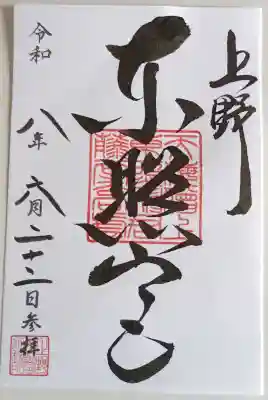 上野
東照宮
令和
八年六月二十二日参拝